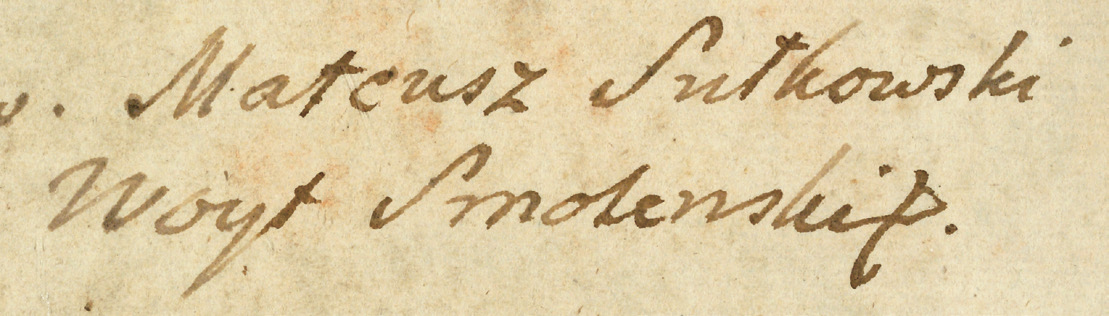 Mateusz Sułkowski
Woyt Smolenski